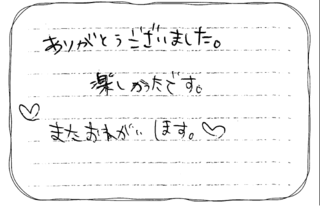 ありがとうございました。
楽しかったです。
♡
またおねがいします。♡